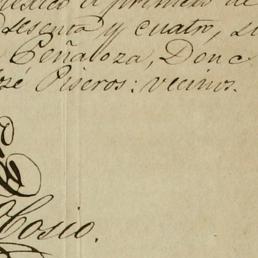 a primero de
sesenta y cuatro, si
Peñaloza, Don C
osé Piseros: vecinos.
Hosio.